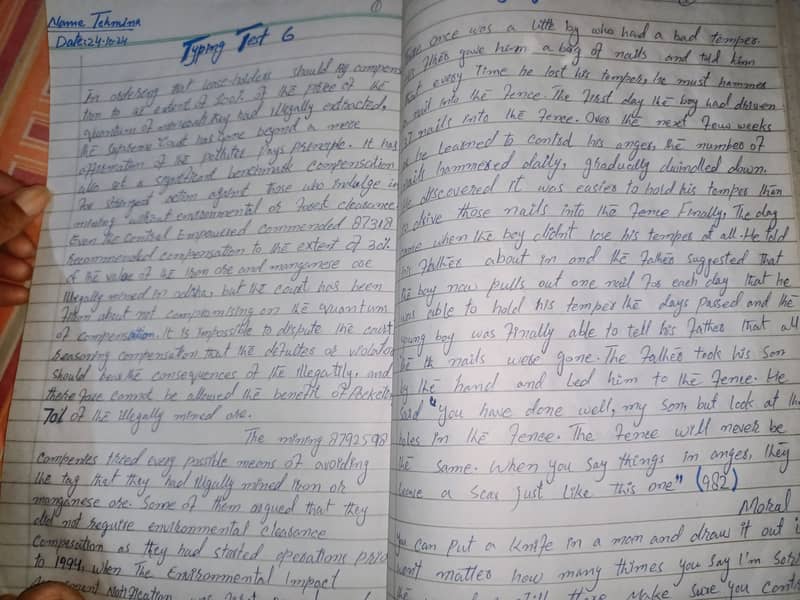 Name Tehmina
Date:24-10-24
Typing Test 6
In ordering that lease-holders should pay compen
tion to at extent of 100% of the price of the
quantum of minerals they had illegally extracted,
the Supreme Court has gone beyond a mere
affirmation of the polluter pays principle. It has
also set a significant benchmark compensation
for stringent action against those who indulge in
mining without environmental or forest clearance.
Even the Central Empowered commended 87318
Recommended compensation to the extent of 30%
of the value of the iron ore and manganese ore
illegally mined in odisha, but the court has been
firm about not compromising on the quantum
of compensation. It is impossible to dispute the court
reasoning compensation that the defultes or violator
should bear the consequences of the illegatily, and
there fore cannot be allowed the benefit of
70% of the illegally mined ore.
The mining 8792598
Companies tried every possible means of avoiding
the tag that they had illegully mined iron or
manganese ore. Some of them argued that they
did not require environmental clearance
Compesation as they had started operations prio
to 1994, when The Environmental Impact
Notification was
①
②
once was a little by who had a bad temper.
father gave him a bag of nails and told him
that every time he lost his temper, he must hammer
nail into the fence. The first day the boy had driven
37 nails into the fence. Over the next few weeks
he learned to control his anger, the number of
nails hammered daily, gradually dwindled down.
He discovered it was easier to hold his temper then
to drive those nails into the fence Finally, the day
came when the boy didn't lose his temper at all. He told
his father about im and the father suggested that
the boy now pulls out one nail for each day that he
was able to hold his temper the days passed and the
young boy was finally able to tell his father that all
the nails were gone. The father took his son
by the hand and led him to the fence. He
said "You have done well, my son, but look at the
holes in the fence. The fence will never be
the same. When you say things in anger, they
leave a scar just like this one" (982)
Moral
You can put a knife in a man and draw it out i
won't matter how many thimes you say I'm sorr
there Make sure you contr